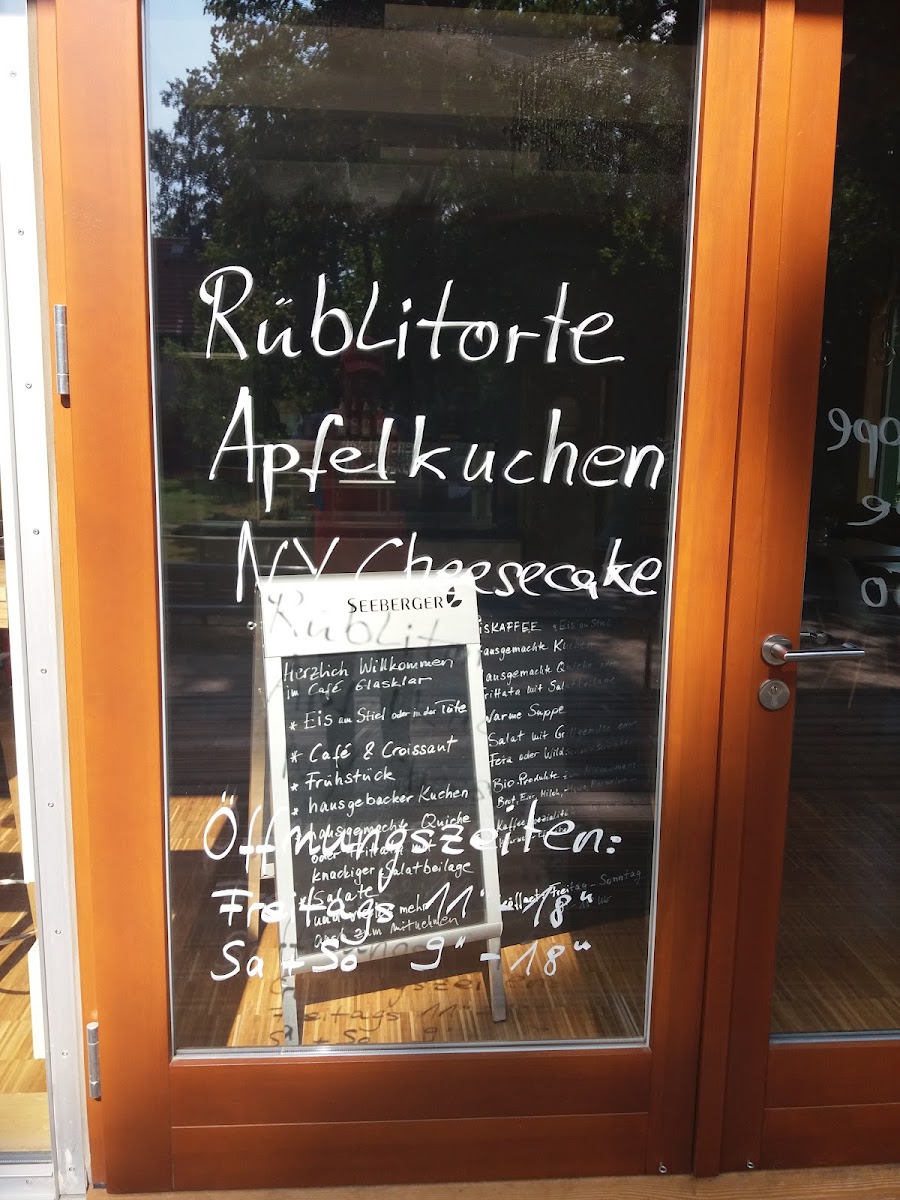 Rüblitorte
Apfelkuchen
NY Cheesecake
SEEBERGER
Herzlich Willkommen
im Café Glasklar
* Eis am Stiel oder in der Tüte
* Café & Croissant
* Frühstück
* hausgebacker Kuchen
hausgemachte Quiche
oder Frittata
knackiger Salatbeilage
* Salate
mehr
auch zum mitnehmen
EISKAFFEE Eis am Stiel
hausgemachte Kuchen
hausgemachte Quiche oder
Frittata mit Salatbeilage
Warme Suppe
Salat mit
Feta oder
Bio-Produkte
Brot, Eier, Milch,
geöffnet Freitag - Sonntag
Uhr
Öffnungszeiten:
Freitags 11°° - 18°°
Sa + So 9°° - 18°°